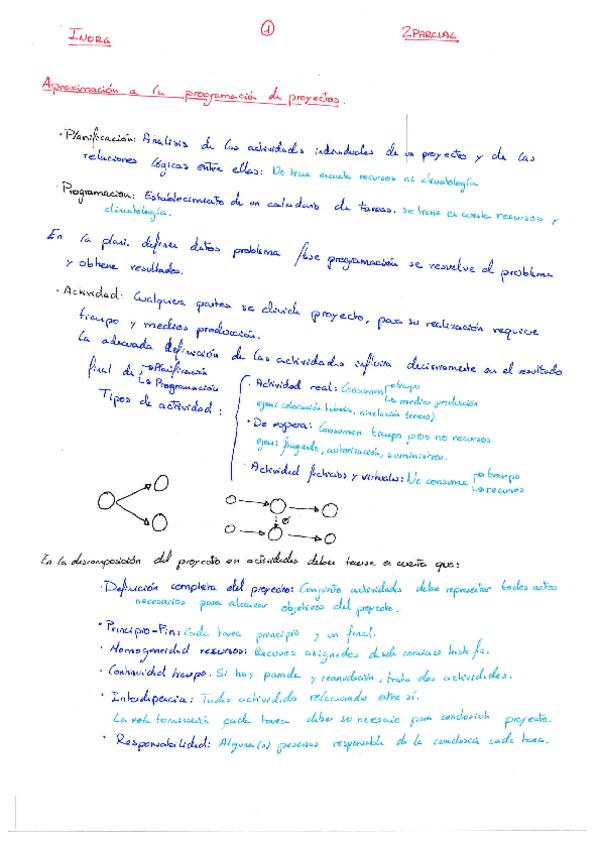 INORG
1
2 PARCIAL
Aproximación a la programación de proyectos.
· Planificación: Análisis de las actividades individuales de un proyecto y de las
relaciones lógicas entre ellas: No tiene cuenta recursos ni climatología
· Programación: Establecimiento de un calendario de tareas. se tiene en cuenta recursos y
climatología.
En la plani. definen datos problema fase programación se resuelve el problema
y obtiene resultados.
· Actividad: Cualquiera partes se divide proyecto, para su realización requiere
tiempo y medios producción.
La adecuada definición de las actividades influirá decisivamente en el resultado
final de → Planificación
→ Programación
Tipos de actividad:
· Actividad real: Consumen → tiempo
→ medios producción
ejem: colocación tubería, nivelación terreno).
· De espera: Consumen tiempo pero no recursos
ejem: fraguado, autorización, suministros.
· Actividad ficticias y virtuales: No consume → tiempo
→ recursos
En la descomposición del proyecto en actividades deben tenerse en cuenta que:
· Definición completa del proyecto: Conjunto actividades debe representar todos actos
necesarios para alcanzar objetivos del proyecto.
· Principio-Fin: Cada tarea principio y un final.
· Homogeneidad recursos: Recursos asignados desde comienzo hasta fin.
· Continuidad tiempo. Si hay parada y reanudación, trata dos actividades.
· Interdepencia: Todas actividades relacionadas entre sí.
La terminación cada tarea debe ser necesario para conclusión proyecto.
· Responsabilidad: Alguna(s) personas responsable de la conclusión cada tarea.